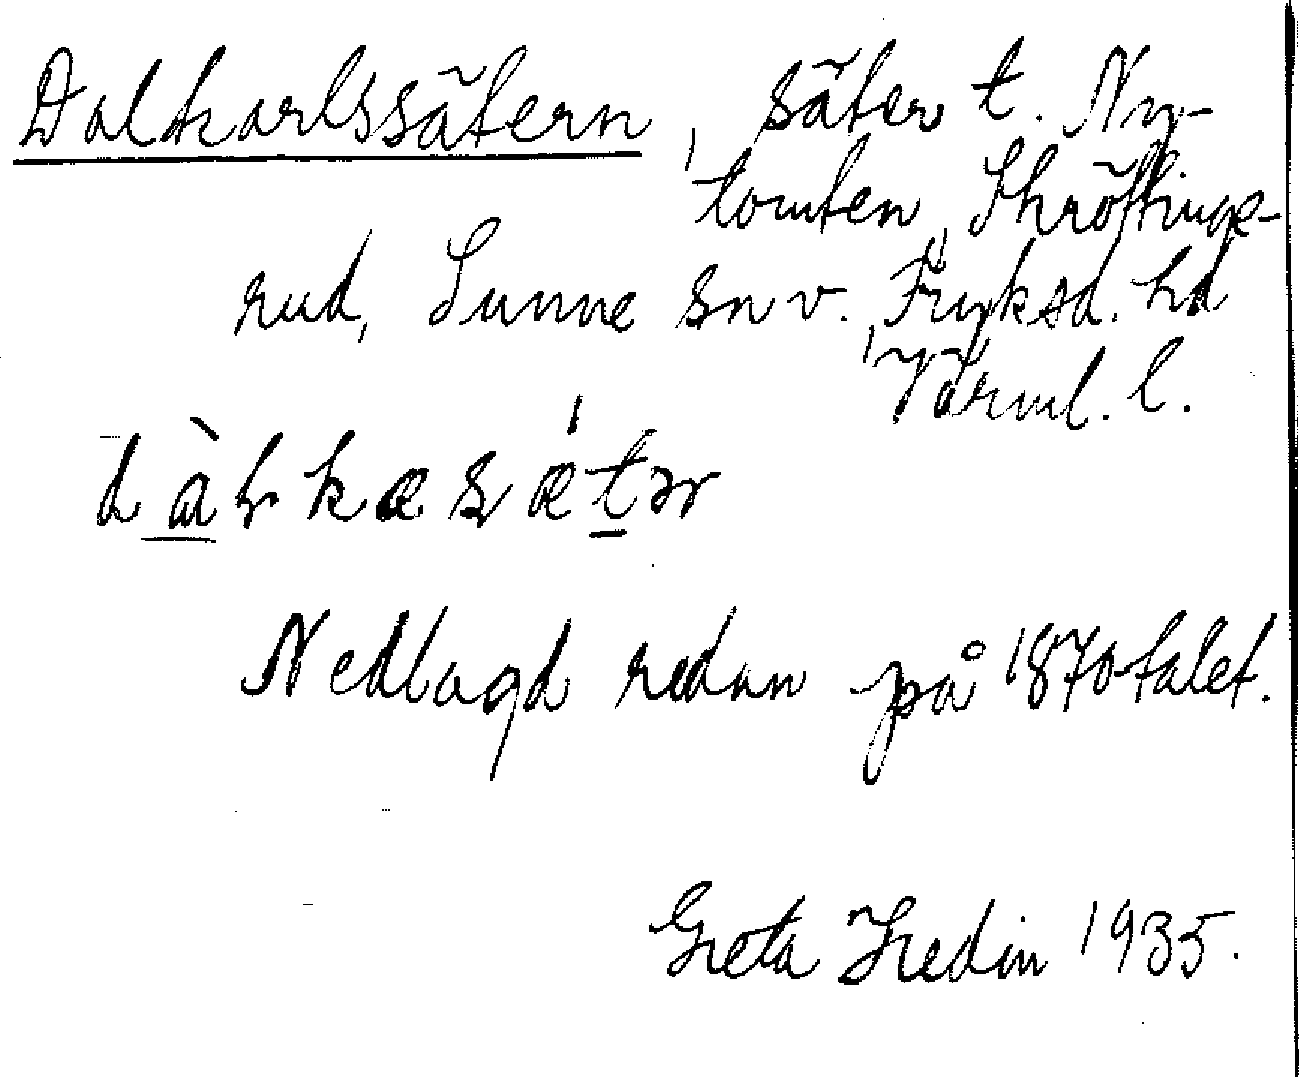 Dalkarlssätern, säter t. Ny-
tomten, Skröttinge-
rud, Sunne sn v. Fryksd. hd
Värml. l.
Nedlagd redan på 1870 talet.
Greta Hedin 1935.